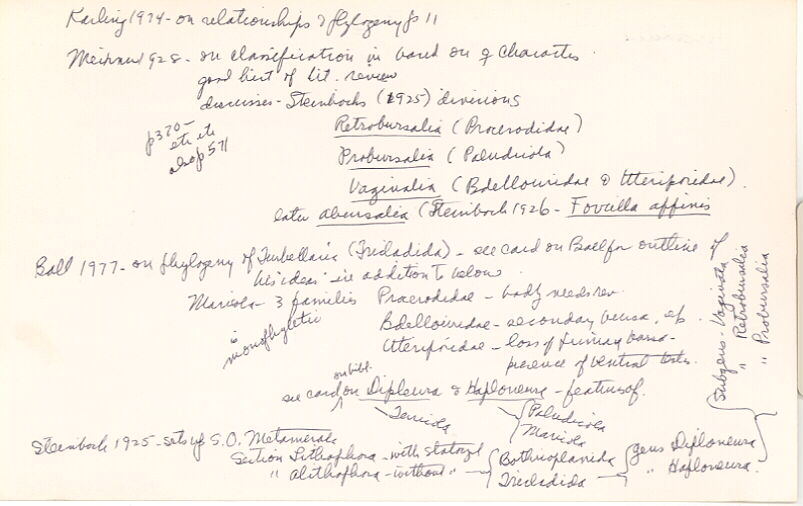 Karling 1974 - on relationships & phylogeny p 11
Meixner 1928 - on classification in based on ♀ characters.
good hist of lit. review
discusses - Steinbocks (1925) divisions
p 370 -
etc etc
also p 571
Retrobursalia (Procerodidae)
Probursalia (Paludicola)
Vaginalia (Bdellouridae & Uteriporidae).
later abursalia (Steinbock 1926 - Foviella affinis
Ball 1977 - on phylogeny of Turbellaria (Tricladida) - see card on Ball for outline of
his ideas in addition to below
Maricola - 3 families Procerodidae - badly needs rev.
is
monophyletic
Bdellouridae - secondary bursa,
Uteriporidae - loss of primary bursa -
presence of ventral testes.
on bibl.
see card on Dipleura & Haploneura - features of.
Terricola
Paludicola
Maricola
Steinbock 1925 - sets up S.O. Metamerata
Section Lithophora - with statocyst
" Alithophora - without "
Bothrioplanida
Tricladida
gens Diploneura
" Haploneura.
Subgens - Vaginata
" Retrobursalia
" Probursalia